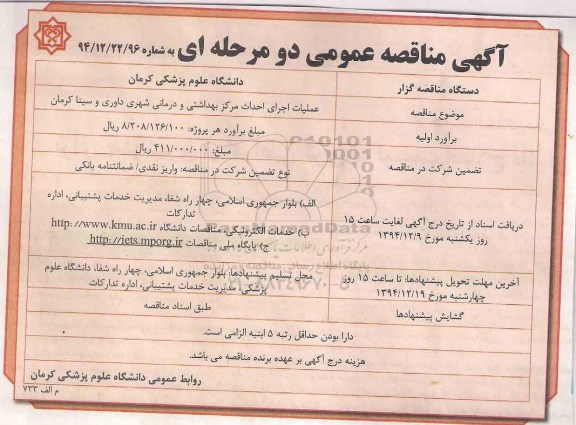 آگهی مناقصه عمومی دو مرحله ای به شماره ۹۴/۱۲/۲۲/۹۶
دستگاه مناقصه گزار
دانشگاه علوم پزشکی کرمان
موضوع مناقصه
عملیات اجرای احداث مرکز بهداشتی و درمانی شهری داوری و سینا کرمان
برآورد اولیه
مبلغ برآورد هر پروژه: ۸/۲۰۸/۱۲۶/۱۰۰ ریال
تضمین شرکت در مناقصه
مبلغ: ۴۱۱/۰۰۰/۰۰۰ ریال
نوع تضمین شرکت در مناقصه: واریز نقدی/ ضمانتنامه بانکی
دریافت اسناد از تاریخ درج آگهی لغایت ساعت ۱۵
روز یکشنبه مورخ ۱۳۹۴/۱۲/۹
الف) بلوار جمهوری اسلامی، چهار راه شفا، مدیریت خدمات پشتیبانی، اداره
تدارکات
ب) خدمات الکترونیکی، مناقصات دانشگاه http://www.kmu.ac.ir
ج) پایگاه ملی مناقصات http://iets.mporg.ir
آخرین مهلت تحویل پیشنهادها: تا ساعت ۱۵ روز
چهارشنبه مورخ ۱۳۹۴/۱۲/۱۹
محل تسلیم پیشنهادها: بلوار جمهوری اسلامی، چهار راه شفا، دانشگاه علوم
پزشکی، مدیریت خدمات پشتیبانی، اداره تدارکات
گشایش پیشنهادها
طبق اسناد مناقصه
دارا بودن حداقل رتبه ۵ ابنیه الزامی است.
هزینه درج آگهی بر عهده برنده مناقصه می باشد.
روابط عمومی دانشگاه علوم پزشکی کرمان
م الف ۷۳۳